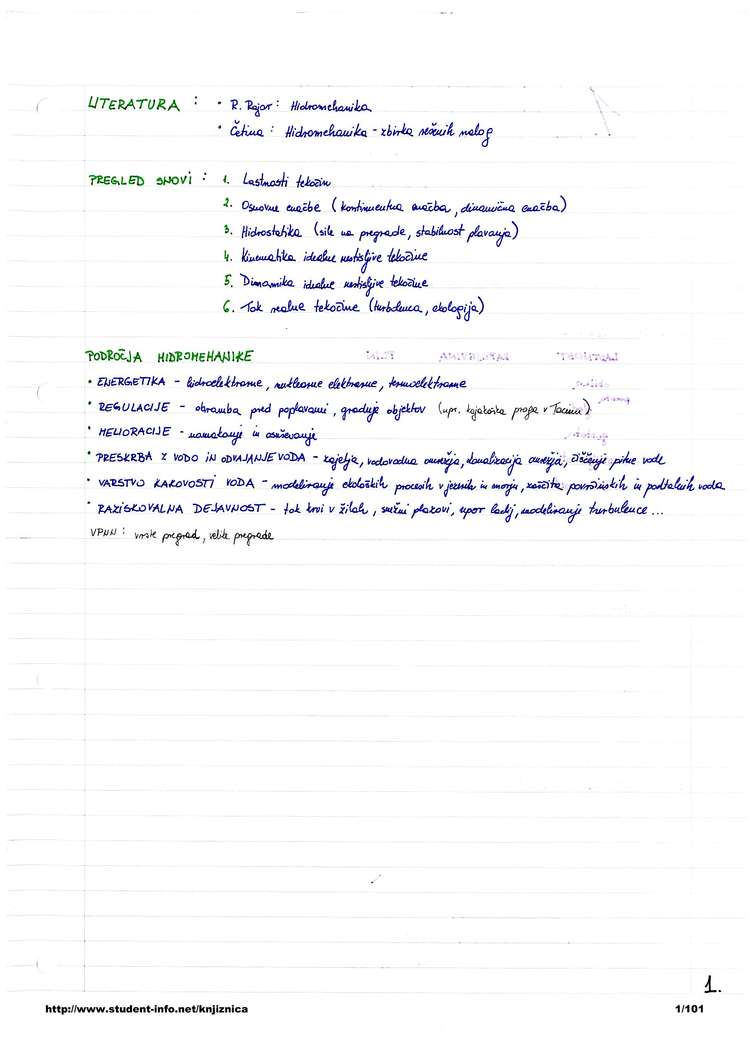 LITERATURA : • R. Rajar : Hidromehanika
• Četina : Hidromehanika - zbirka rešenih nalog
PREGLED SNOVI : 1. Lastnosti tekočin
2. Osnovne enačbe (kontinuitetna enačba, dinamična enačba)
3. Hidrostatika (sile na pregrade, stabilnost plavanja)
4. Kinematika idealne nestisljive tekočine
5. Dinamika idealne nestisljive tekočine
6. Tok realne tekočine (turbulenca, ekologija)
PODROČJA HIDROMEHANIKE
• ENERGETIKA - hidroelektrarne, nuklearne elektrarne, termoelektrarne
• REGULACIJE - obramba pred poplavami, gradnje objektov (npr. kajakaška proga v Tacnu)
• MELIORACIJE - namakanje in osuševanje
• PRESKRBA Z VODO IN ODVAJANJE VODA - zajetja, vodovodna omrežja, kanalizacija omrežja, čiščenje pitne vode
• VARSTVO KAKOVOSTI VODA - modeliranje ekoloških procesih v jezerih in morju, zaščita površinskih in podtalnih voda
• RAZISKOVALNA DEJAVNOST - tok krvi v žilah, snežni plazovi, upor ladij, modeliranje turbulence ...
VPNN : vrste pregrad, velike pregrade
1.
http://www.student-info.net/knjiznica 1/101